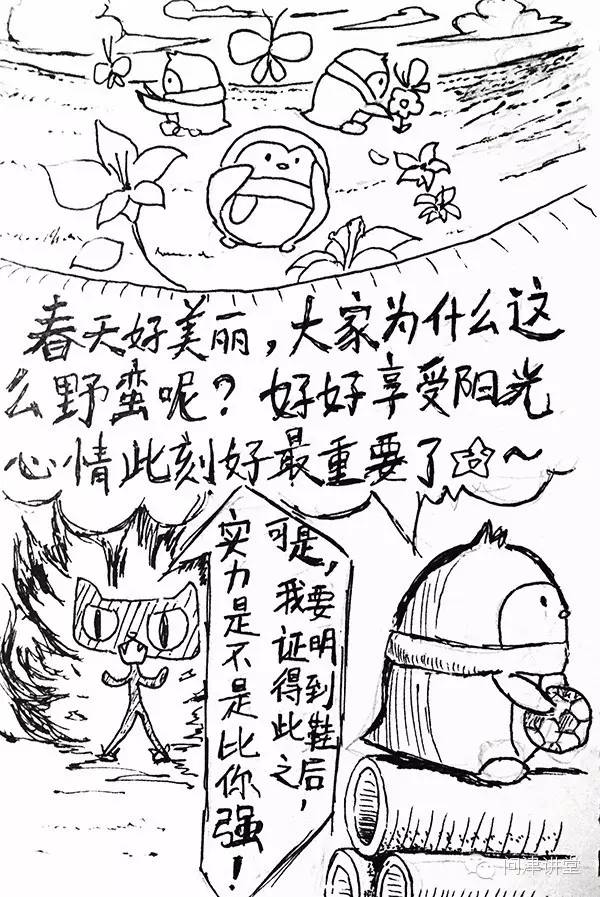 春天好美丽，大家为什么这
么野蛮呢？好好享受阳光
心情此刻好最重要了☆～
可是，我要证明得到此鞋之后，
实力是不是比你强！
问津讲堂